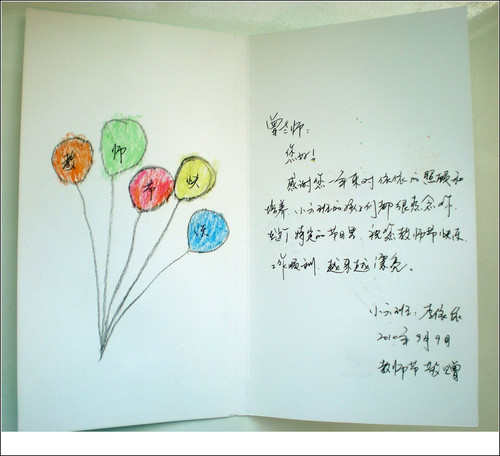 教
师
节
快
乐
曾老师：
您好！
感谢您一年来对依依的照顾和
培养，小六班的孩子们都很想念你，
在这个特定的节日里，祝您教师节快乐，
工作顺利，越来越漂亮。
小六班：李依依
2010年9月9日
教师节敬赠